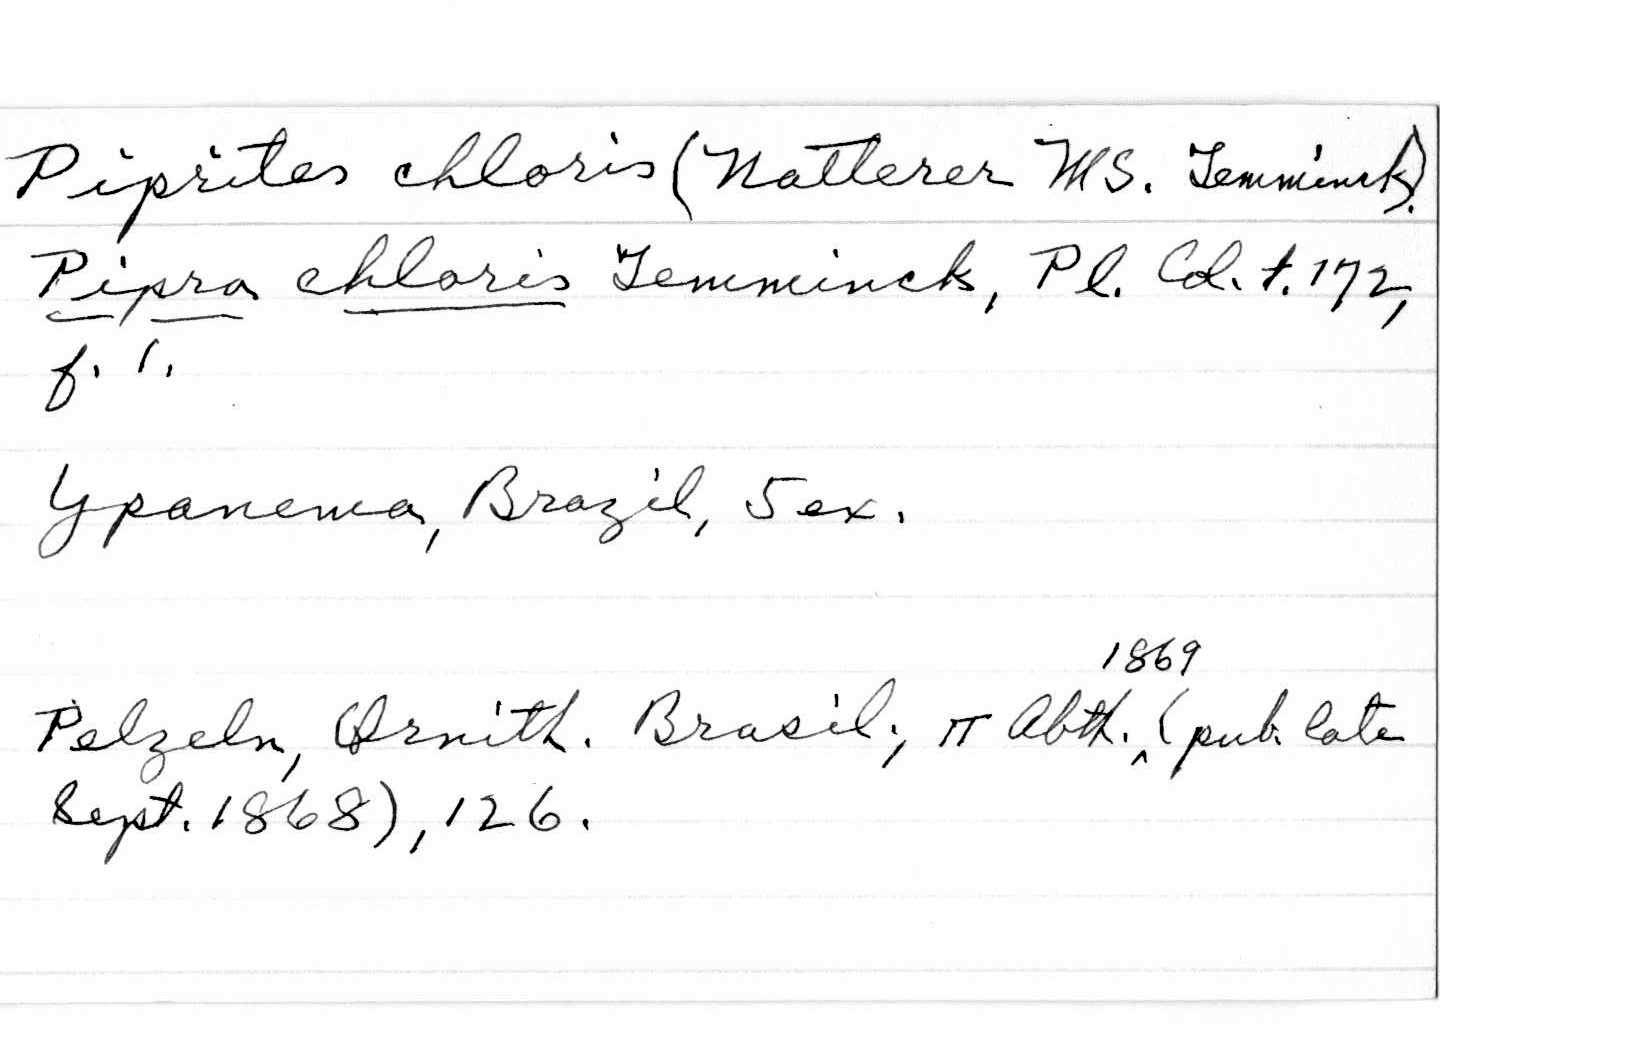 Piprites chloris (Natterer MS. Temminck).
Pipra chloris Temminck, Pl. Col. t. 172,
f. 1.
Ypanema, Brazil, 5 ex.
Pelzeln, Ornith. Brasil., II Abth. 1869 (pub. late
Sept. 1868), 126.